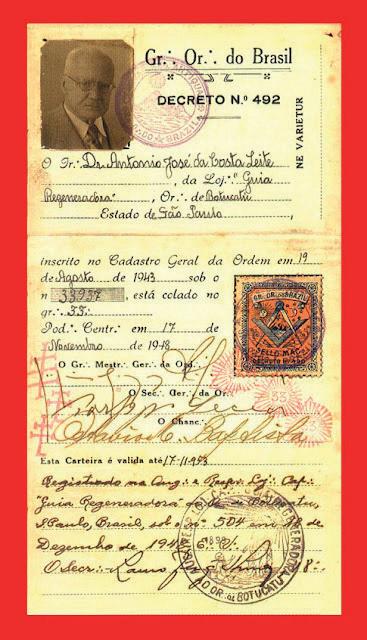 Gr∴ Or∴ do Brasil
DECRETO N.º 492
NE VARIETUR
O Ir∴ Dr. Antonio José da Costa Leite
, da Loj∴ "Guia
Regeneradora", Or∴ de Botucatú
Estado de São Paulo,
inscrito no Cadastro Geral da Ordem em 19
de Agosto de 1943 sob o
n 33957, está colado no
gr∴ 33∴
Pod∴ Centr∴ em 17 de
Novembro de 1948
GR∴ OR∴ DO BRAZIL
SELLO MAÇ∴
O Gr∴ Mestr∴ Ger∴ da Ord∴
O Sec∴ Ger∴ da Or.
O Chanc∴
33
33
Esta Carteira é valida até 17-11-953
Registrado na Aug∴ e Resp∴ Loj∴ Cap∴
"Guia Regeneradora" de Botucatu,
S. Paulo, Brasil, sob o nº 504 em 18 de
Dezembro de 194
O Secr∴
OR∴ DE BOTUCATU